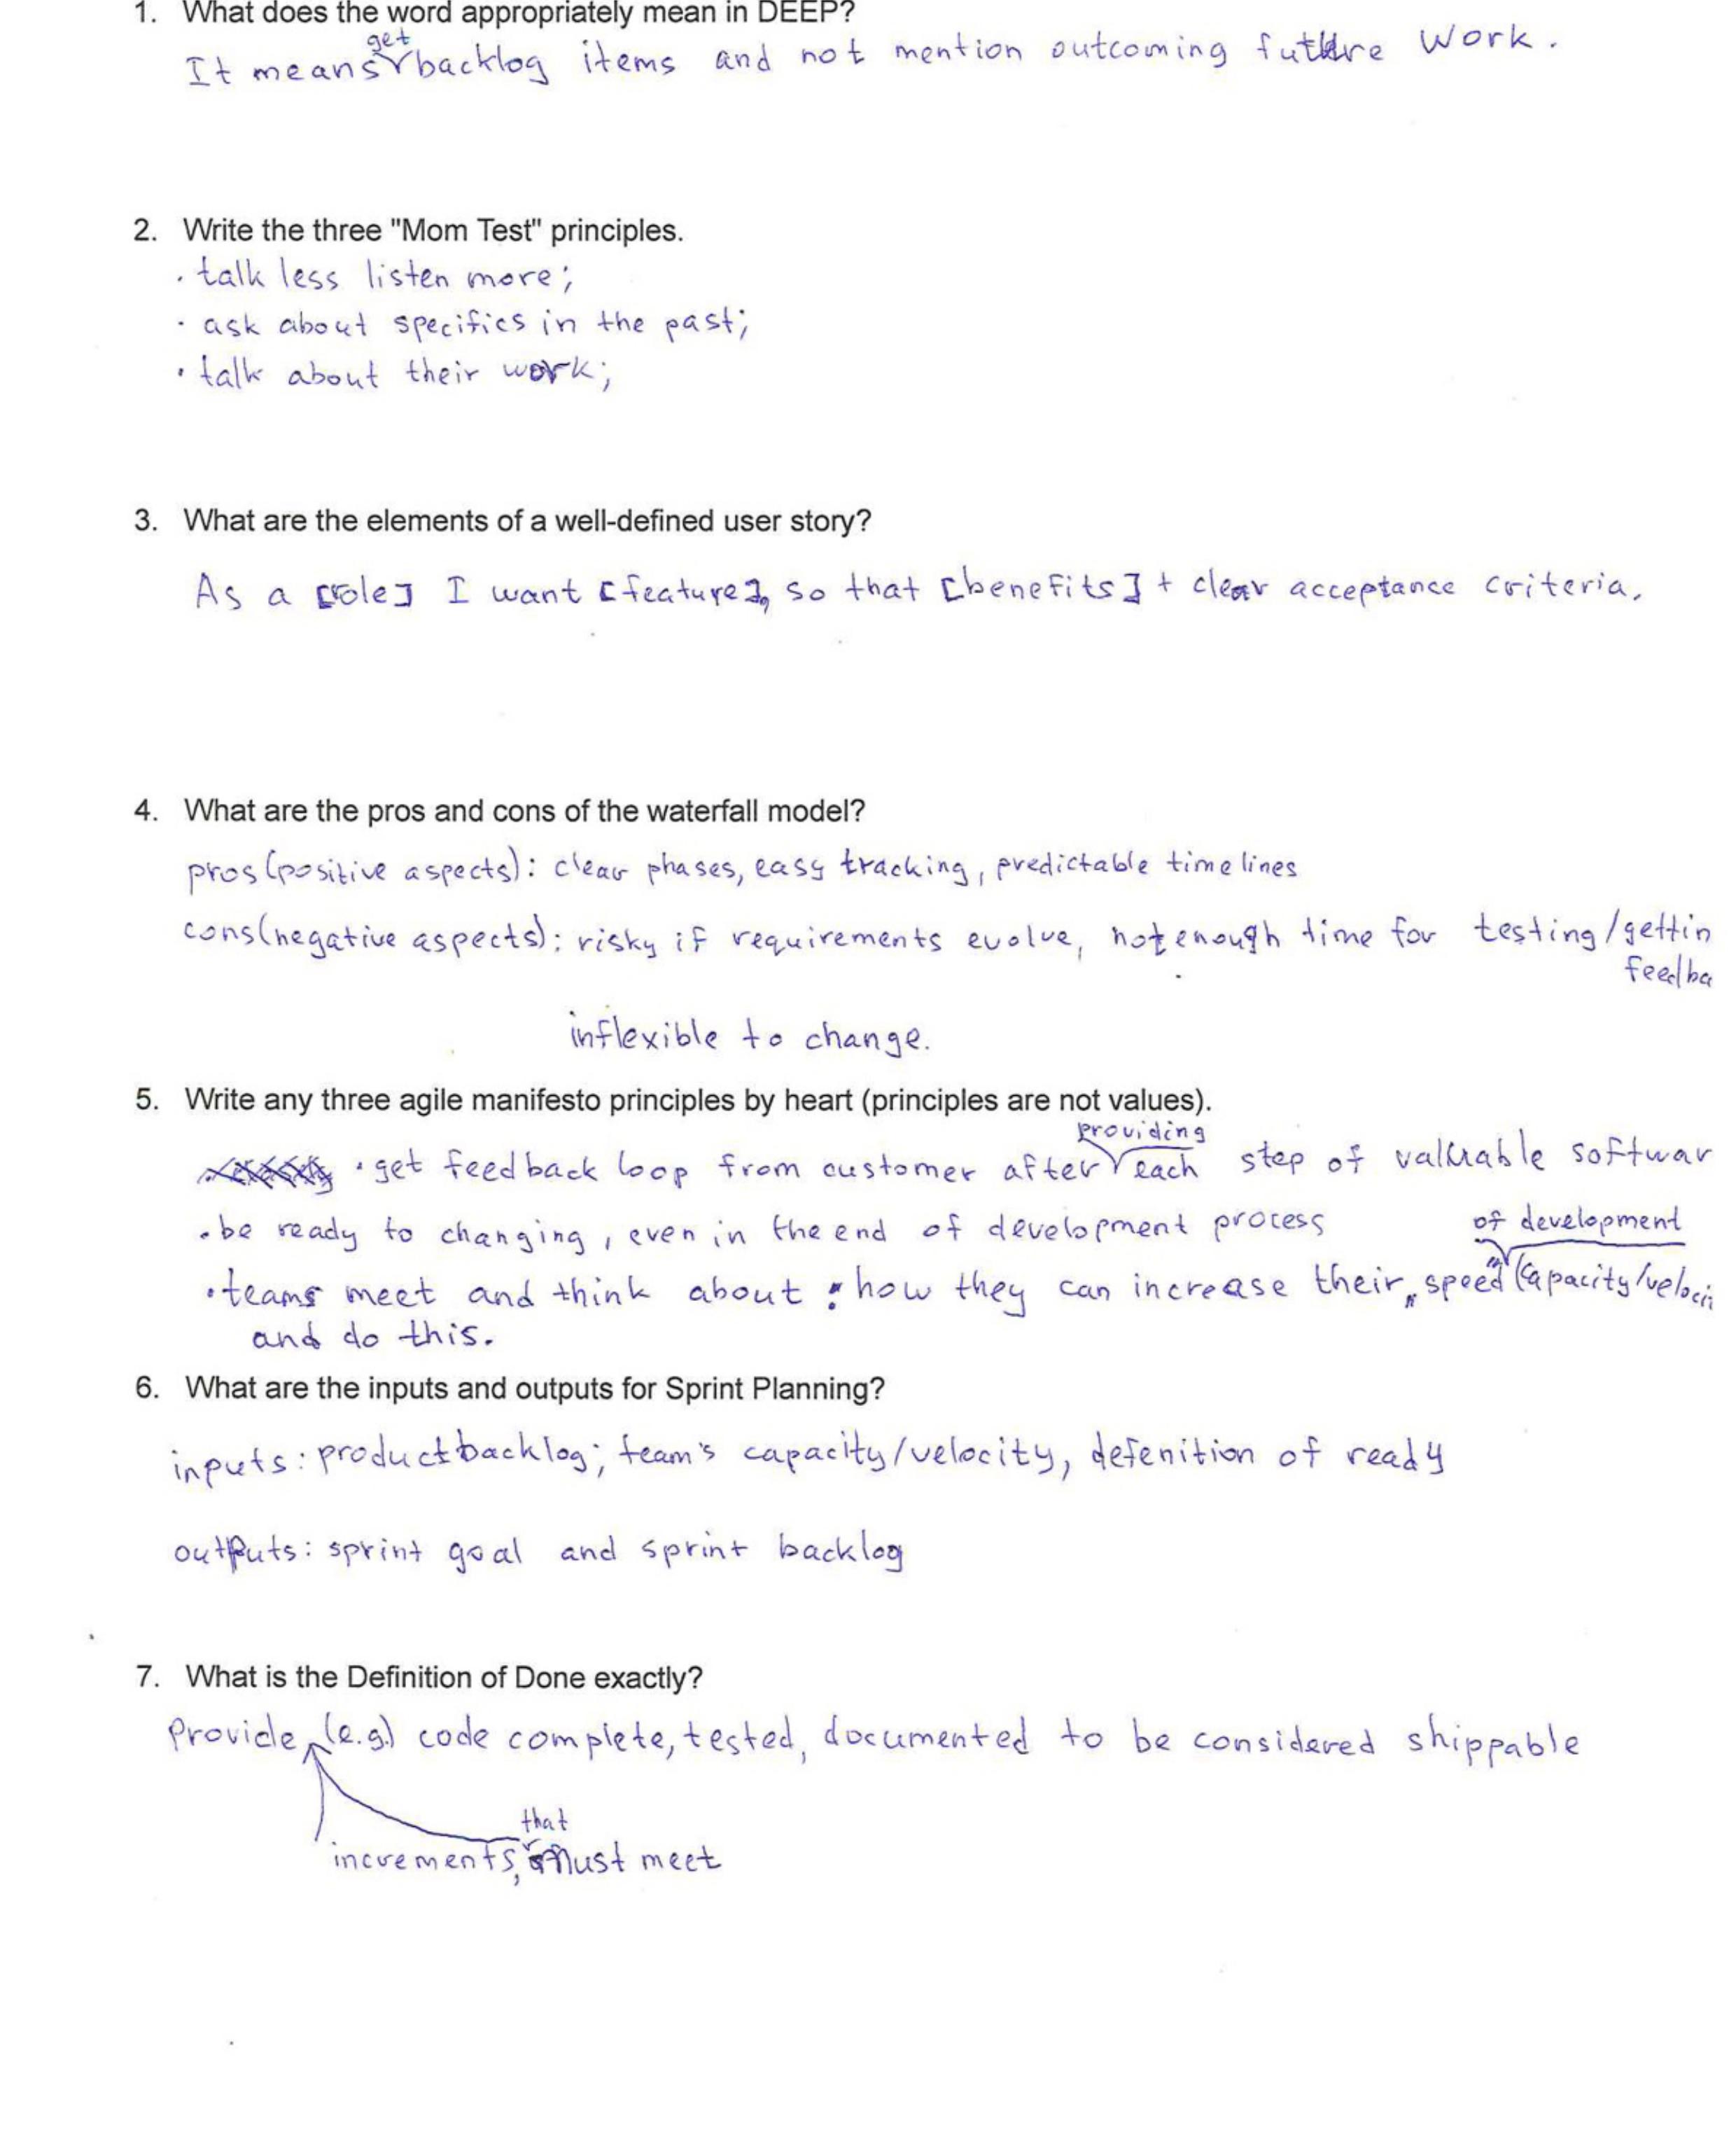 1. What does the word appropriately mean in DEEP?
It means get backlog items and not mention outcoming future work.
2. Write the three "Mom Test" principles.
· talk less listen more;
· ask about specifics in the past;
· talk about their work;
3. What are the elements of a well-defined user story?
As a [role] I want [feature], so that [benefits] + clear acceptance criteria.
4. What are the pros and cons of the waterfall model?
pros (positive aspects): clear phases, easy tracking, predictable timelines
cons (negative aspects): risky if requirements evolve, not enough time for testing/gettin
feedba
inflexible to change.
5. Write any three agile manifesto principles by heart (principles are not values).
· get feedback loop from customer after providing each step of valuable softwar
· be ready to changing, even in the end of development process
· teams meet and think about : how they can increase their "speed" of development (capacity/veloci
and do this.
6. What are the inputs and outputs for Sprint Planning?
inputs: product backlog; team's capacity/velocity, defenition of ready
outputs: sprint goal and sprint backlog
7. What is the Definition of Done exactly?
Provide (e.g.) code complete, tested, documented to be considered shippable
increments, that must meet